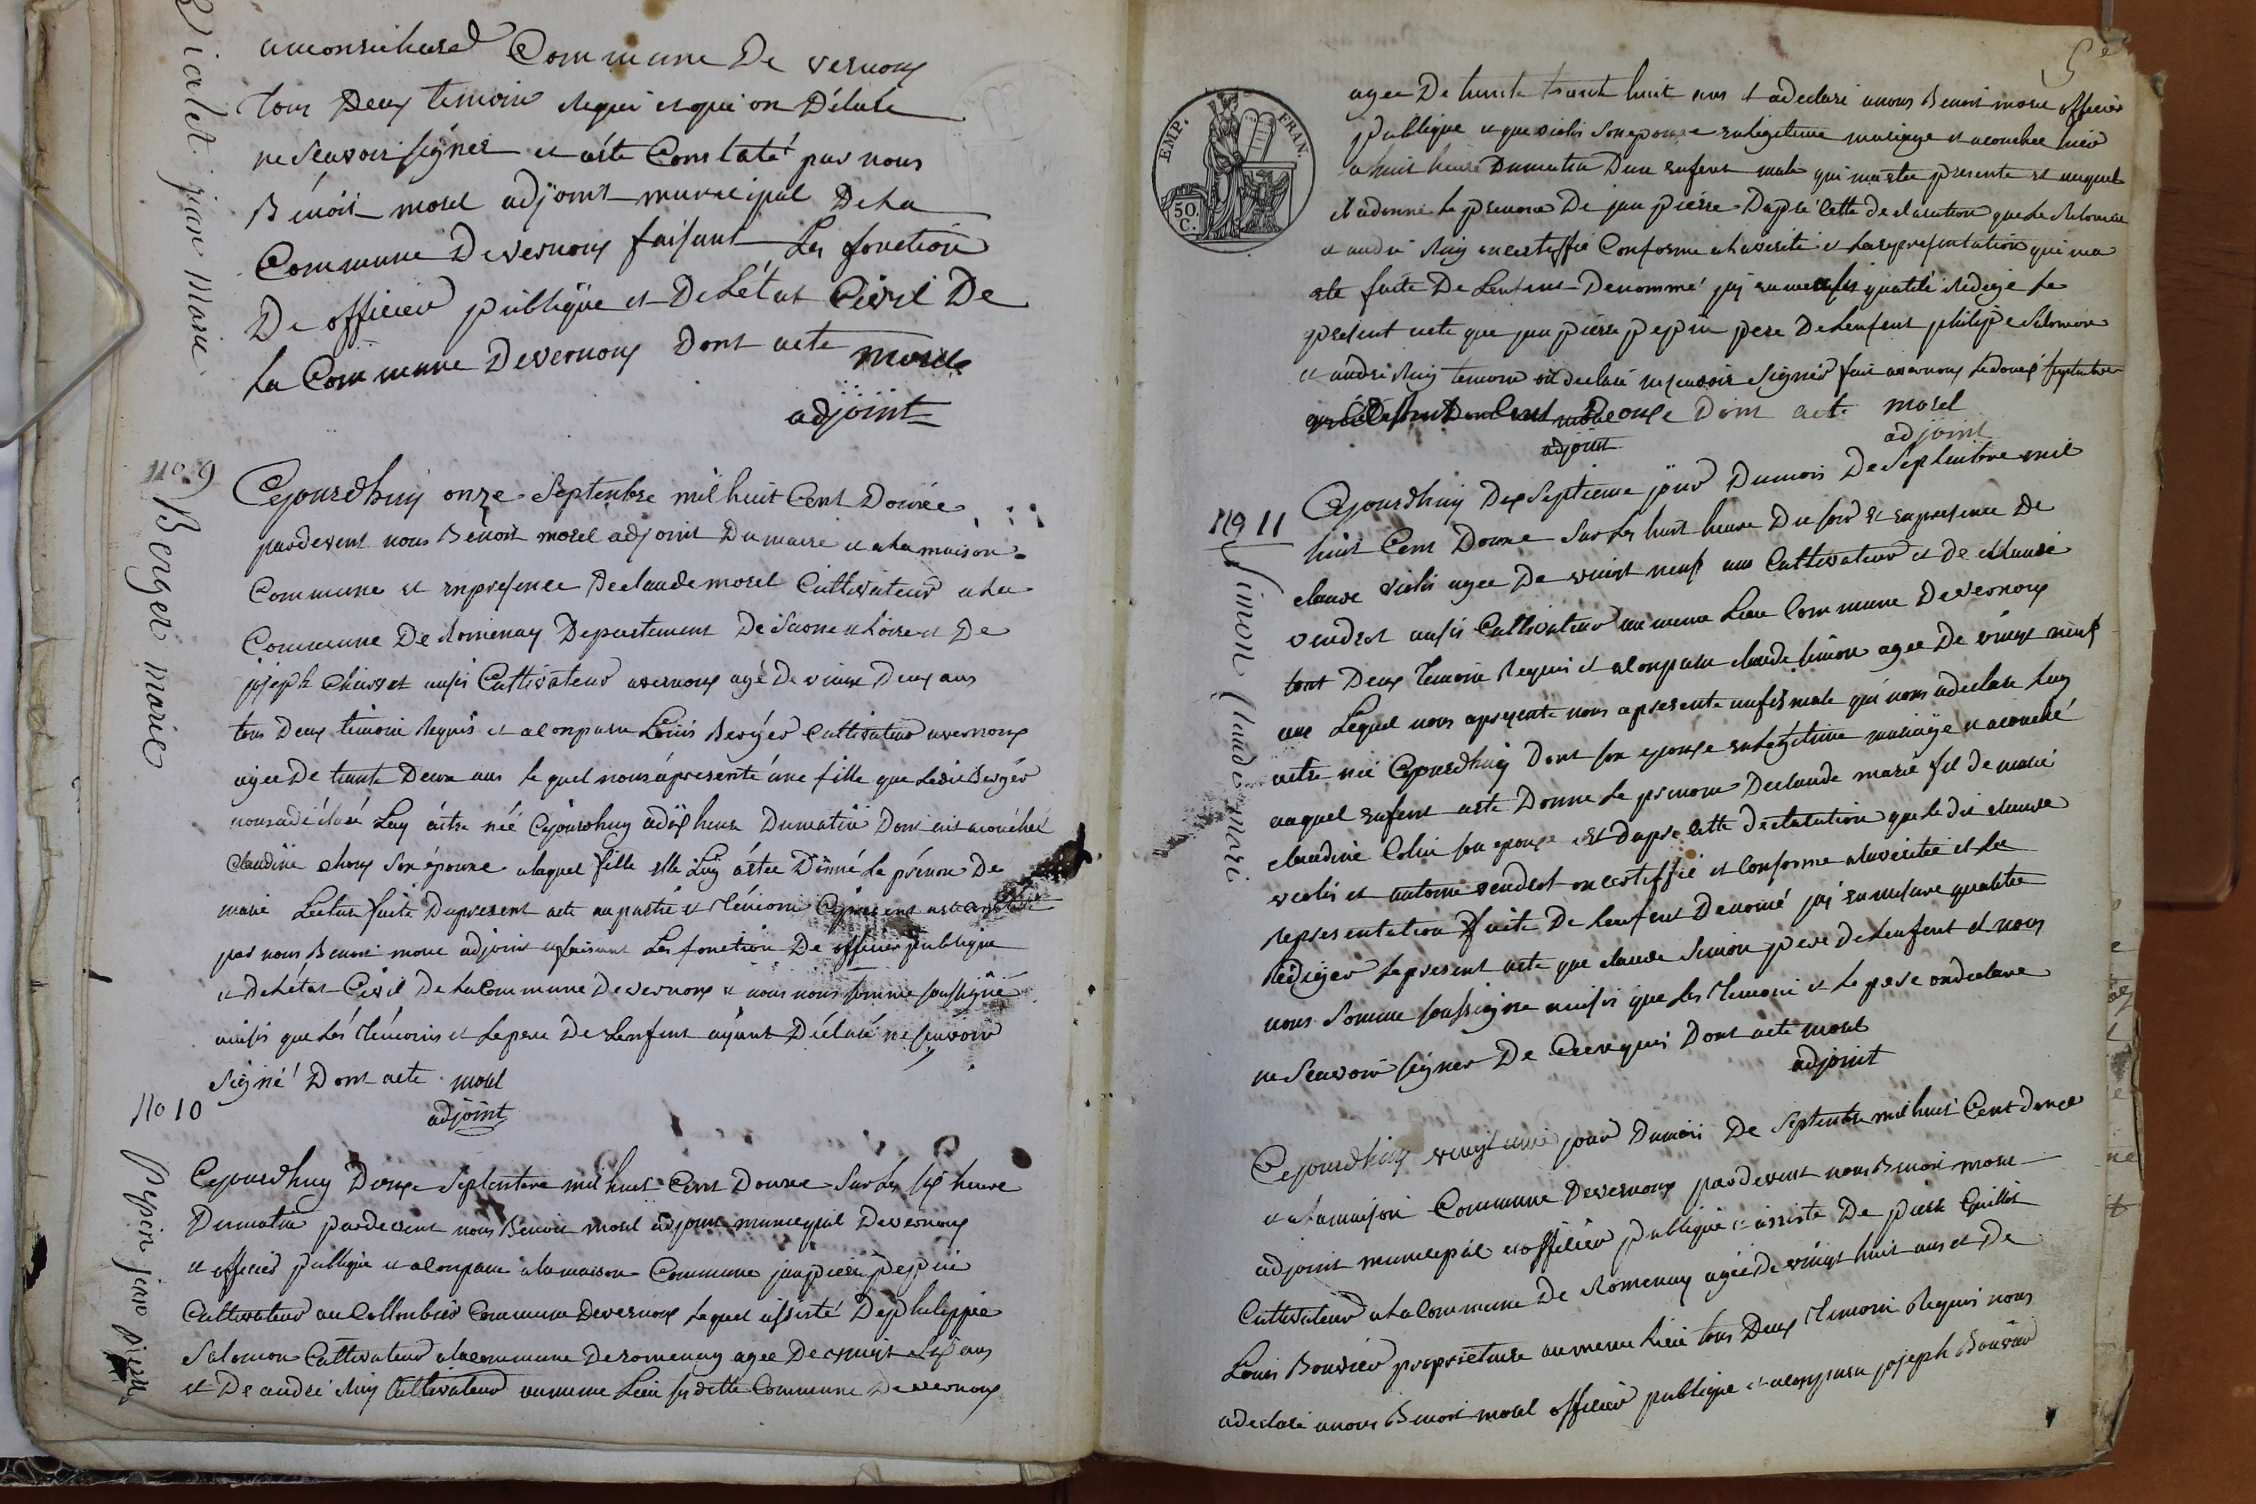 Vialet jean Marie
Commune De vernoux
tous Deux temoin Requi et qui on Déclaré
ne Scavoir signer et a été Constaté par nous
Bénoit morel adjoint municipal De La
Commune De vernoux faisant Les fonction
De officier publique et De L'état Civil De
La Commune De vernoux Dont acte morel
adjoint
No 9
Berger marie
Cejourdhuy onze Septenbre mil huit Cent Douze
pardevent nous Bénoit morel adjoint Du maire et a la maison
Commune et en presence De claude morel Cultivateur a La
Commune De Romenay Departement De Saone et Loire et De
joseph Chavet ausis Cultivateur a vernoux agé De vinxt Deux ans
tous Deux témoin Requis et a Conparu Louis Berger Cultivateur a vernoux
agee De trante Deux ans Lequel nous a presenté une fille que Ledit Berger
nous a déclaré Luy aitre néé Cejourdhuy a dix heure Dumatin Dont est acouchée
Claudine son épouse a laquel fille elle Luy a étée Donné Le prénon De
marie Lecture faite Du present acte au partie et témoin
par nous Benoit morel adjoint et faisant Les fonction De officier publique
et De Létat Civil De La Commune De vernoux et nous nous somme soussigné
ainsis que Les témoins et Le pere De Lenfent ayant Déclaré ne scavoir
Signé Dont acte morel
adjoint
No 10
Pepin jean Pierre
Cejourdhuy Douze Septenbre mil huit Cent Douze Sur Les six heure
Dumatin pardevent nous Benoit morel adjoint municipal De vernoux
et officier publique et a Conparu a la maison Commune jean pierre pepin
Cultivateur au Collonbier Commune De vernoux Lequel assisté De philippe
Salomon Cultivateur a la commune De romenay agee De vinxt et six ans
et De andré Ruy Cultivateur au meme Lieu susditte Commune De vernoux
5e
EMP. FRAN.
50. C.
agee De trante huit ans et a declaré a nous Benoit morel officier
publique et que violis son epouse en Legitime mariage et acouchee hier
a huit heure Dumatin Dun enfent male qui ma etee presenté et auquel
il a donné Le prenon De jean pierre Daprè Cette declaration que Le Salomon
et andré Ruy on certiffié Conforme a la verité et La representation qui ma
ete faite De Lenfent Denommé jai en ma qualité Redigé Le
present acte que jean pierre pepin pere De Lenfent philipe Salomon
et andré Ruy temoin on declaré ne scavoir signer fait a vernoux Le douze septenbre
Dont acte morel
adjoint
adjoint
No 11
Simon Claude marie
Cejourdhuy Dix Septieme jour Dumois De Septenbre mil
huit Cent Douze Sur Les huit heure Du soir et en presence De
claude violis agee De vinxt neuf ans Cultivateur et De
vendrot ausis Cultivateur au meme Lieu Commune De vernoux
tout Deux temoin Requis et a Conparu claude simon agee De vinxt neuf
ans Lequel nous a presente nous a presente un fis male qui nous a declare Luy
aitre néé Cejourdhuy Dont son epouse en Legitime mariage et acouché
auquel enfent a ete Donne Le prenom De claude marie fil de marie
claudine Colin son epouse et Daprè cette declaration que Le dit claude
violis et antoine vendrot on certiffié et Conforme a la verité et La
representation faite De Lenfent Denomé jai en ma qualité
Rédiger Le present acte que claude simon pere De Lenfent et nous
nous Somme soussigne ainsis que Les témoin et Le pere on declare
ne Scavoir signer De Ce Requis Dont acte morel
adjoint
Cejourdhuy vingt jour Dumois De Septenbre mil huit Cent douze
et a la maison Commune De vernoux pardevent nous Benoit morel
adjoint municipal et officier publique et assisté De piere Guillot
Cultivateur a La Commune De Romenay agée De vingt huit ans et De
Louis Bouvier propriétaire au meme Lieu tous Deux témoin Requis nous
a declaré a nous Benoit morel officier publique et a conparu joseph Bouvier